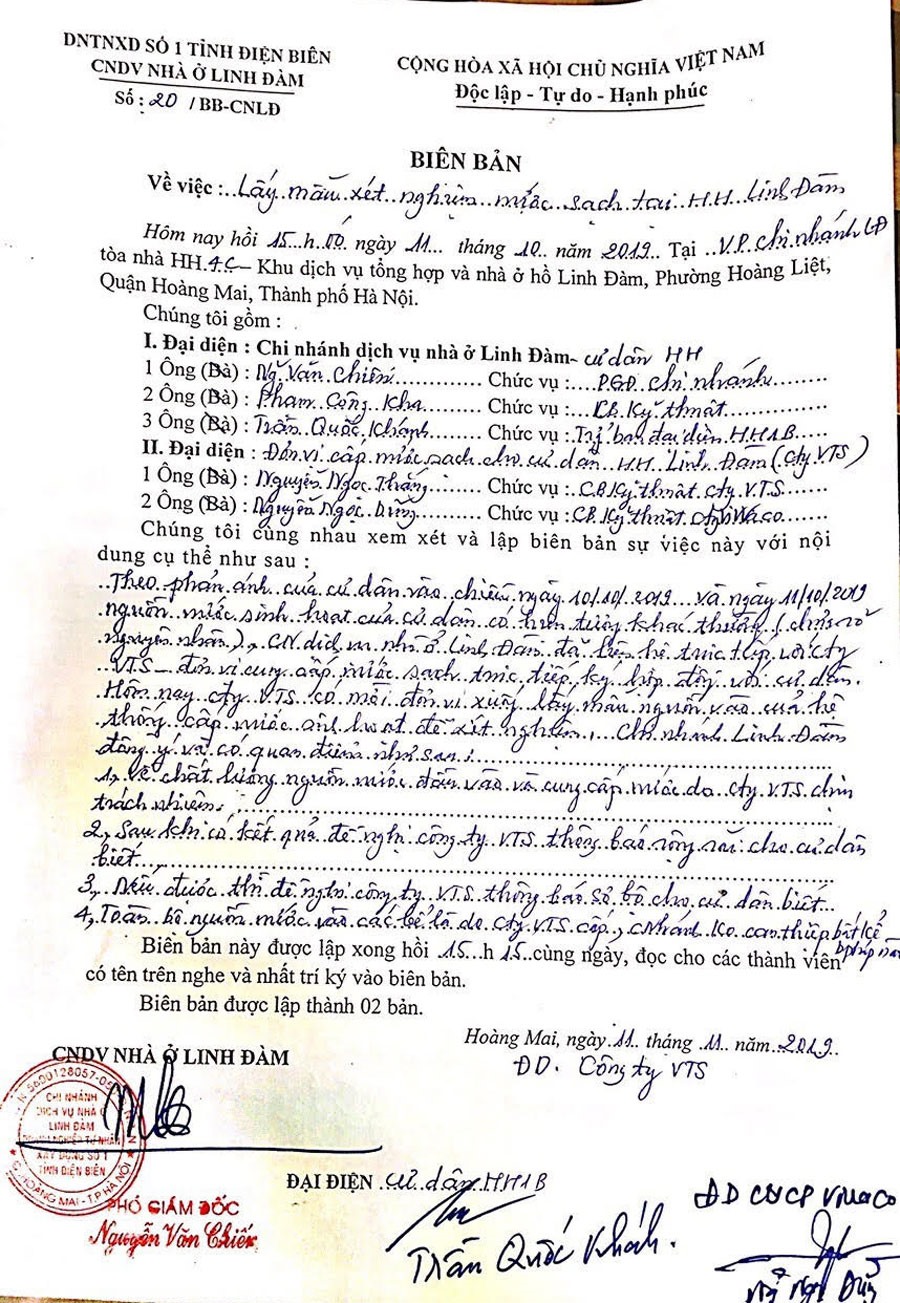 DNTNXD SỐ 1 TỈNH ĐIỆN BIÊN
CNDV NHÀ Ở LINH ĐÀM
Số : 20 / BB-CNLĐ
CỘNG HÒA XÃ HỘI CHỦ NGHĨA VIỆT NAM
Độc lập - Tự do - Hạnh phúc
BIÊN BẢN
Về việc : Lấy mẫu xét nghiệm nước sạch tại HH Linh Đàm
Hôm nay hồi 15 h 00 ngày 11 tháng 10 năm 2019 Tại V.P. chi nhánh LĐ
tòa nhà HH 4C – Khu dịch vụ tổng hợp và nhà ở hồ Linh Đàm, Phường Hoàng Liệt,
Quận Hoàng Mai, Thành phố Hà Nội.
Chúng tôi gồm :
I. Đại diện : Chi nhánh dịch vụ nhà ở Linh Đàm- cư dân HH
1 Ông (Bà) : Ng Văn Chiến Chức vụ : P.GĐ chi nhánh
2 Ông (Bà) : Phạm Công Kha Chức vụ : CB Kỹ thuật
3 Ông (Bà) : Trần Quốc Khánh Chức vụ : Trg ban đại diện HH1B
II. Đại diện : Đơn vị cấp nước sạch cho cư dân HH Linh Đàm (Cty VTS)
1 Ông (Bà) : Nguyễn Ngọc Thắng Chức vụ : CB Kỹ thuật cty VTS
2 Ông (Bà) : Nguyễn Ngọc Dũng Chức vụ : CB Kỹ thuật cty Viwaco
Chúng tôi cùng nhau xem xét và lập biên bản sự việc này với nội
dung cụ thể như sau :
Theo phản ánh của cư dân vào chiều ngày 10/10/2019 và ngày 11/10/2019
nguồn nước sinh hoạt của cư dân có hiện tượng khác thường (chưa rõ
nguyên nhân), CN dịch vụ nhà ở Linh Đàm đã liên hệ trực tiếp với cty
VTS – đơn vị cung cấp nước sạch trực tiếp ký hợp đồng với cư dân.
Hôm nay cty VTS có mời đơn vị xuống lấy mẫu nguồn vào của hệ
thống cấp nước sinh hoạt để xét nghiệm, chi nhánh Linh Đàm
đồng ý và có quan điểm như sau:
1, Về chất lượng nguồn nước đầu vào và cung cấp nước do cty VTS chịu
trách nhiệm.
2, Sau khi có kết quả đề nghị công ty VTS thông báo rộng rãi cho cư dân
biết
3, Nếu được thì đề nghị công ty VTS thông báo sơ bộ cho cư dân biết
4, Toàn bộ nguồn nước vào các bể là do cty VTS cấp, CNhánh ko can thiệp bất kể
Biên bản này được lập xong hồi 15 h 15 cùng ngày, đọc cho các thành viên
có tên trên nghe và nhất trí ký vào biên bản.
Biên bản được lập thành 02 bản.
Hoàng Mai, ngày 11 tháng 11 năm 2019
CNDV NHÀ Ở LINH ĐÀM
ĐD. Công ty VTS
CHI NHÁNH
DỊCH VỤ NHÀ Ở
LINH ĐÀM
DOANH NGHIỆP TƯ NHÂN
XÂY DỰNG SỐ 1
TỈNH ĐIỆN BIÊN
Q. HOÀNG MAI - T.P HÀ NỘI
PHÓ GIÁM ĐỐC
Nguyễn Văn Chiến
ĐẠI ĐIỆN cư dân HH1B
Trần Quốc Khánh.
ĐD CTYCP Viwaco
Ng Ngọc Dũng